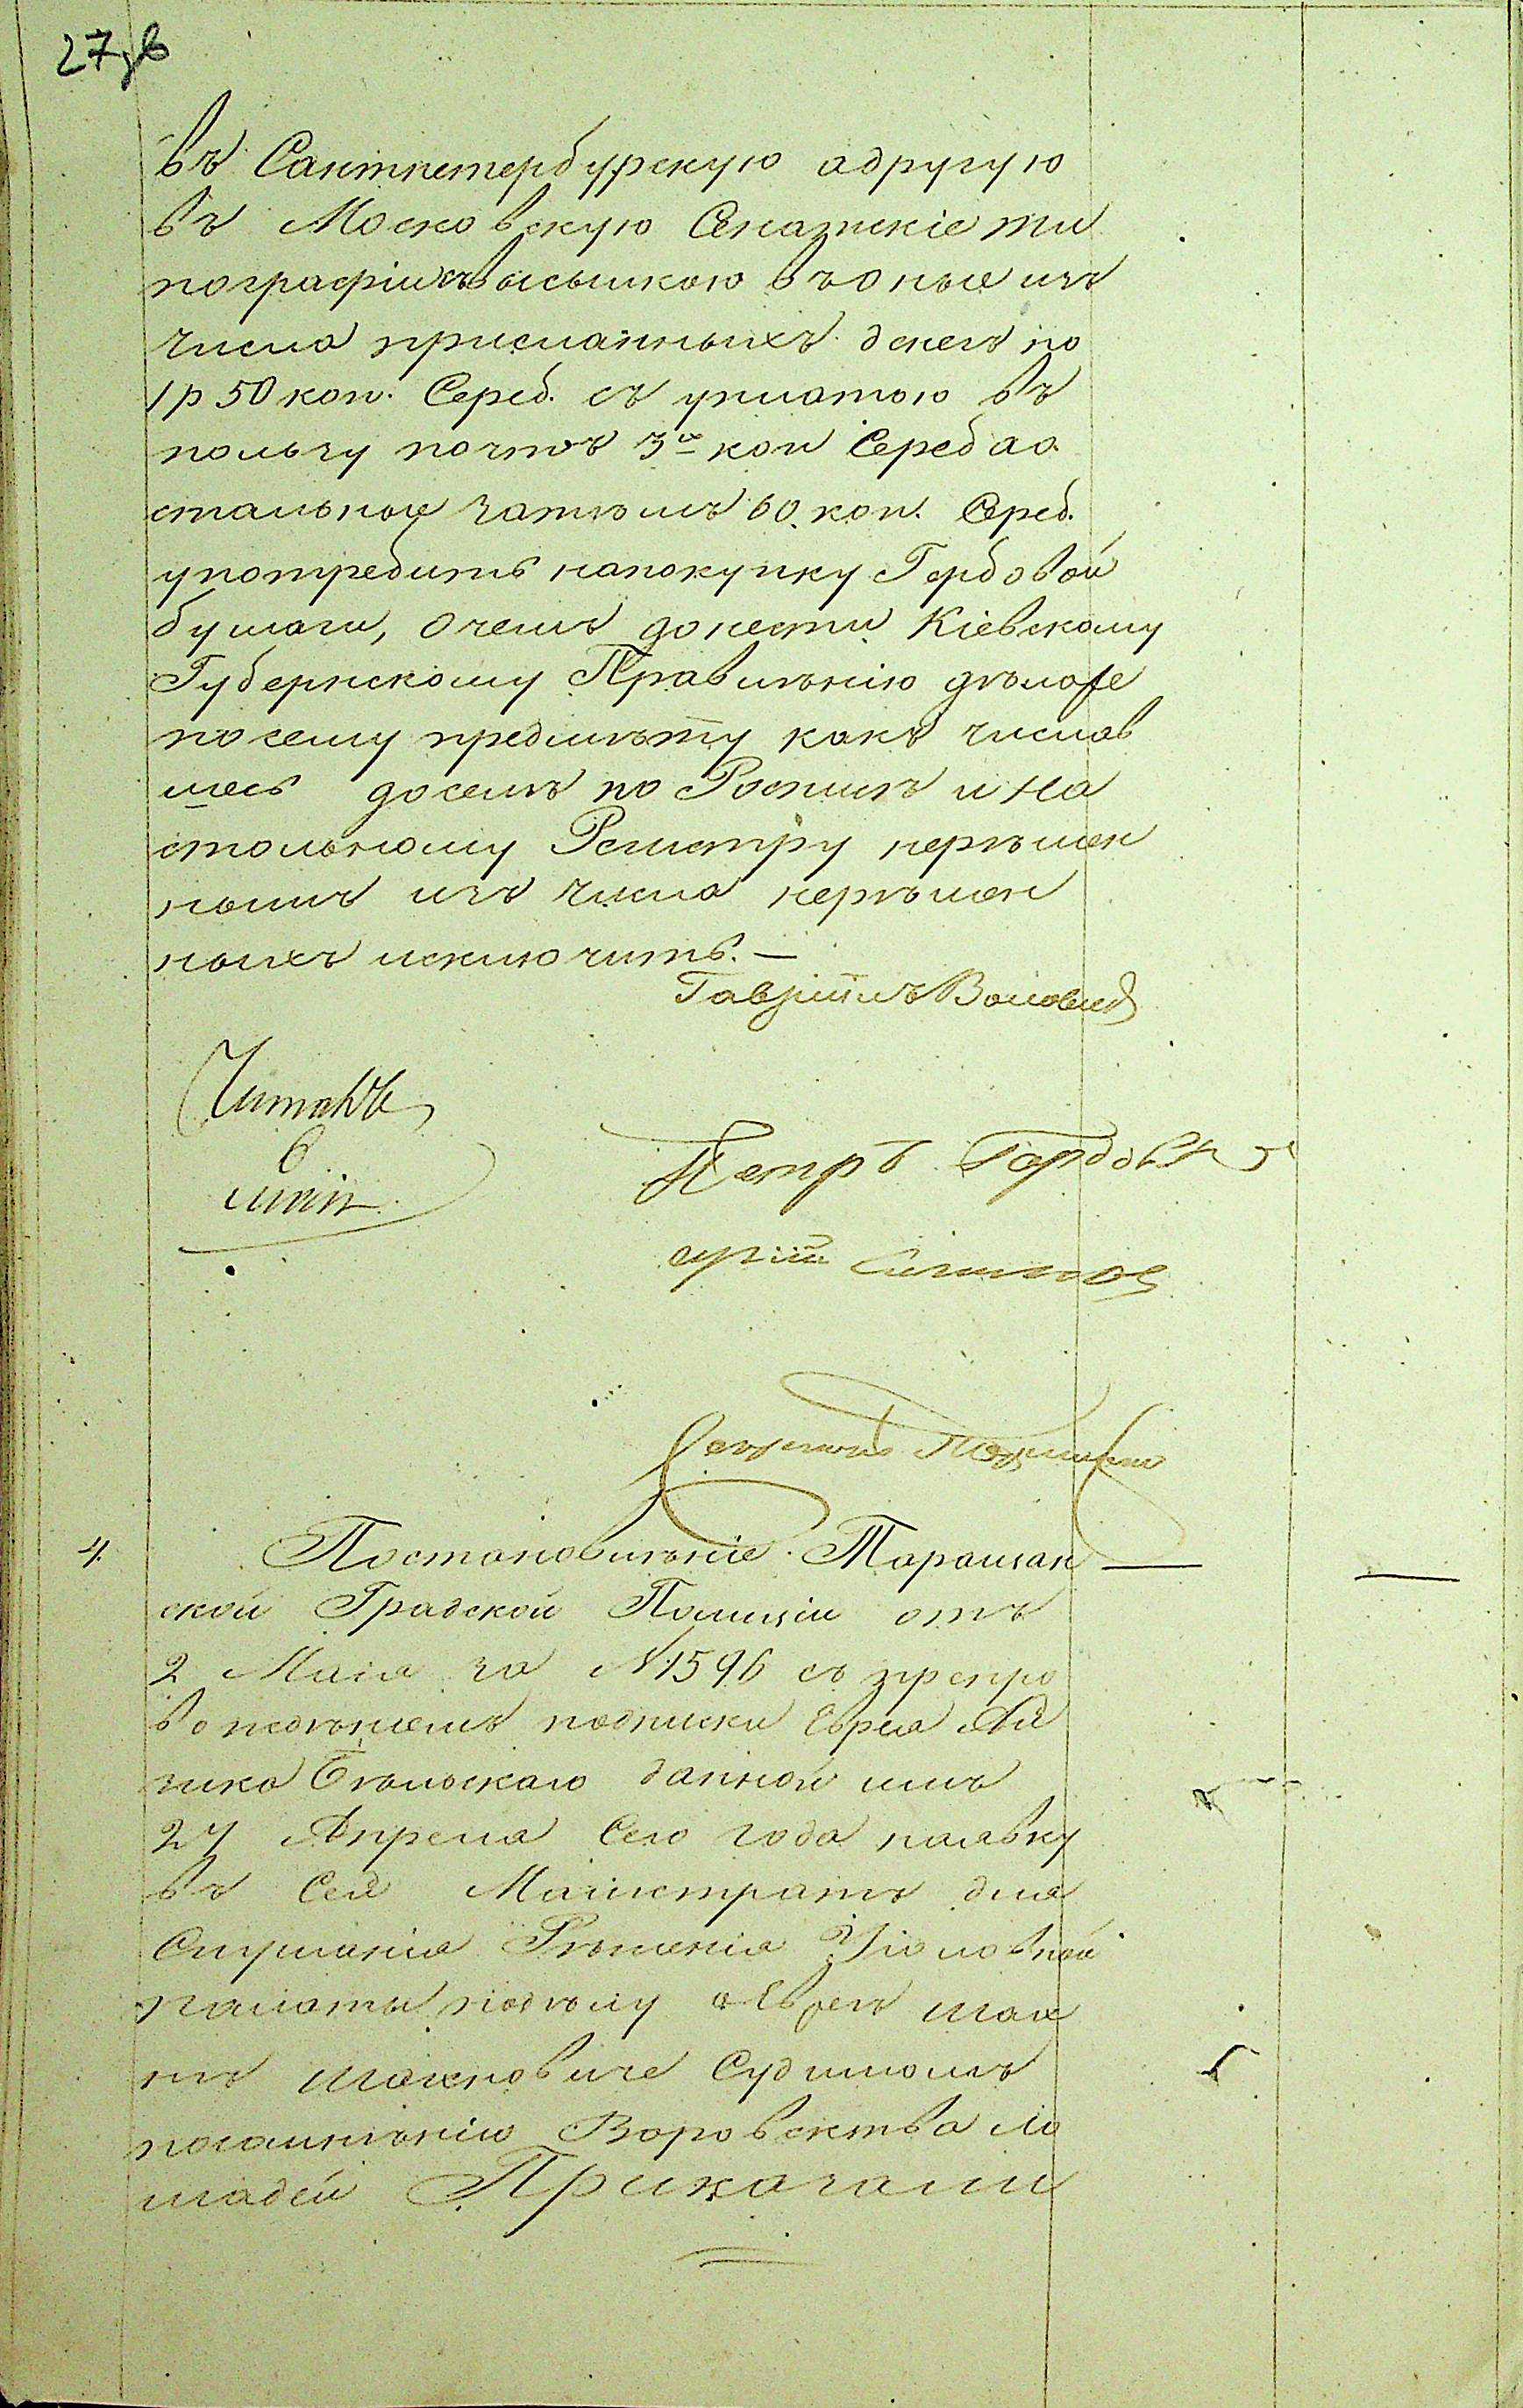 въ Санктпетербурскую адругую
въ Московскую Сенатскіе ти
пографіи свысылкою въоные изъ
числа присланныхъ денегъ по
1 р 50 коп. Сереб. съ уплатою въ
пользу почтъ 3хъ коп Сереб ао
стальные затѣмъ 60 коп. Сереб.
употребить напокупку Гербовой
бумаги, очемъ донести Кіевскому
Губернскому Правленію дѣложе
посему предмѣту какъ числив
шесь доселѣ по Росписи и На
стольному Регистру нерѣшен
нымъ изъ числа нерѣшен
ныхъ исключить. —
Гавріилъ
Читалъ
Петръ
4. Постановленіе Таращан —
ской Градской Полиціи отъ
2 Маія за № 1596 съ препро
вожденіемъ подписки Еврея Ай
зика Бѣльскаго данной имъ
27 Апреля Сего года наявку
въ Сей Магистратъ для
Слушанія Рѣшенія Уголовной
палаты подѣлу о Евреѣ
Судимомъ
посомнѣнію Воровства ло
шадей Приказали